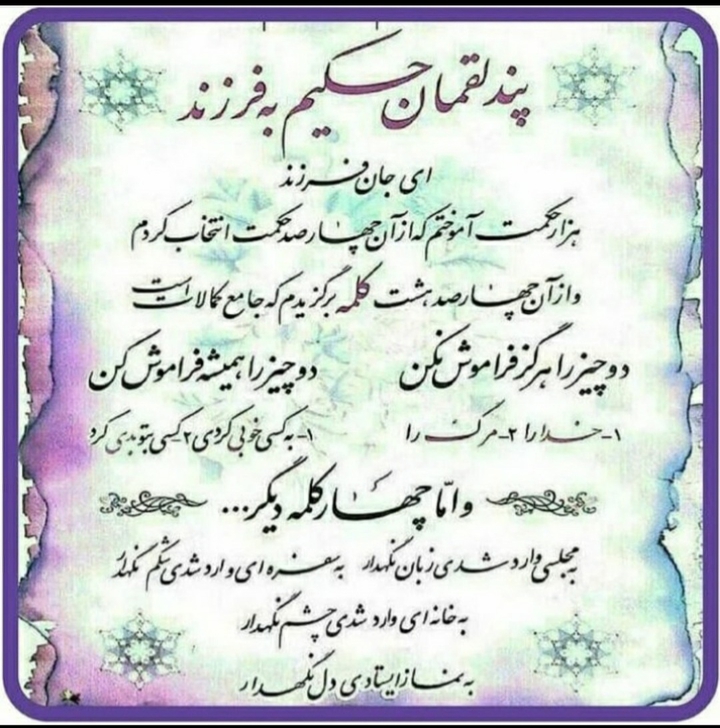 پند لقمان حکیم به فرزند
ای جان فرزند
هزار حکمت آموختم که از آن چهارصد حکمت انتخاب کردم
و از آن چهارصد هشت کلمه برگزیدم که جامع کمالات است
دو چیز را هرگز فراموش نکن دو چیز را همیشه فراموش کن
۱- خدا را ۲- مرگ را ۱- به کسی خوبی کردی ۲ کسی بتو بدی کرد
و امّا چهار کلمه دیگر...
به مجلسی وارد شدی زبان نگهدار به سفره ای وارد شدی شکم نگهدار
به خانه ای وارد شدی چشم نگهدار
به نماز ایستادی دل نگهدار